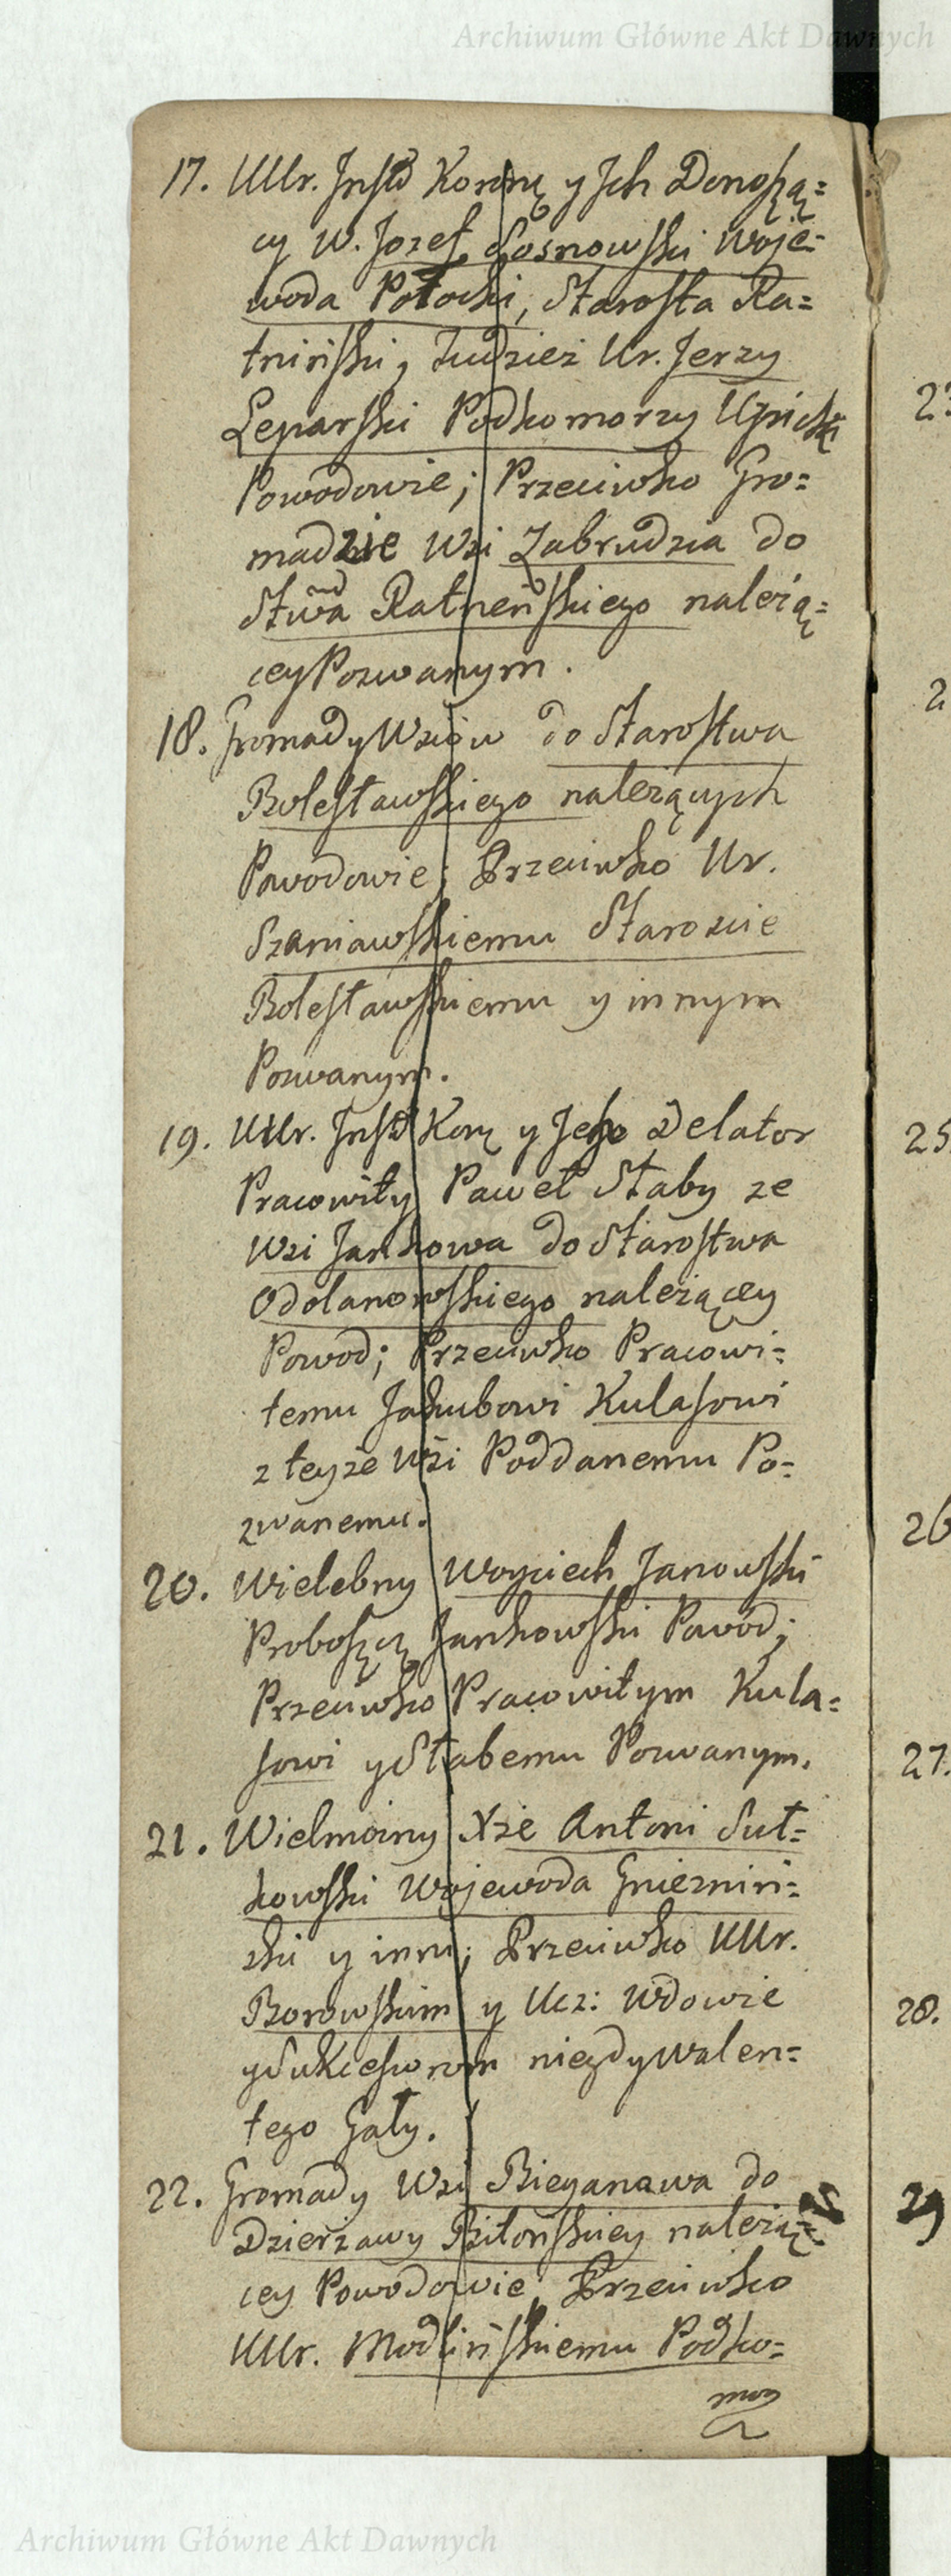 Archiwum Główne Akt Dawnych
17. UUr. Jnstŏ Koronę y Jch Donoszą=
cy W. Jozef Sosnowski Woje=
woda Połocki, Starosta Ra=
tniński, Tudziez Ur. Jerzy
Leparski Podkomorzy Upicki
Powodowie; Przeciwko Gro=
madzie Wsi Zabrudzia do
Stwa Ratneńskiego należą=
cey Pozwanym.
18. Gromady Wsiow do Starostwa
Bolesławskiego należących
Powodowie; Przeciwko Ur.
Szaniawskiemu Staroscie
Bolesławskiemu y innym
Pozwanym.
19. UUr. Jnstŏ Korę y Jego Delator
Pracowity Paweł Słaby ze
Wsi Jankowa do Starostwa
Odolanowskiego należącey
Powod; Przeciwko Pracowi=
temu Jakubowi Kulasowi
z teyże Wsi Poddanemu Po=
zwanemu.
20. Wielebny Woyciech Janowski
Proboszcz Jankowski Powód;
Przeciwko Pracowitym Kula=
sowi y Słabemu Pozwanym.
21. Wielmożny Xże Antoni Suł=
kowski Wojewoda Gnieźniń=
ski y inni; Przeciwko UUr.
Borowskim y Ucz: Wdowie
y Sukcesorom niegdy Walen=
tego Gały.
22. Gromady Wsi Bieganawa do
Dzierżawy Bitońskiey należą=
cey Powodowie; Przeciwko
UUr. Modlińskiemu Podko=
moz
23
2
25
26
27.
28.
29
Archiwum Główne Akt Dawnych